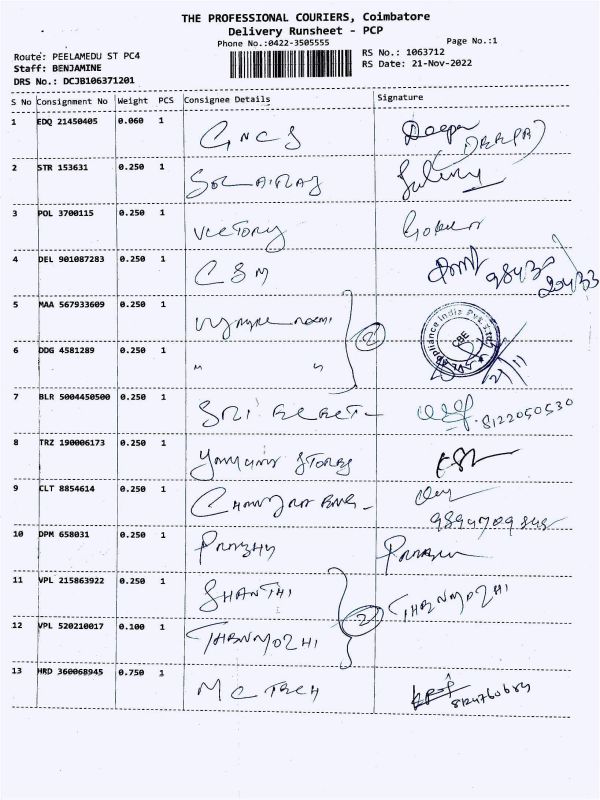 THE PROFESSIONAL COURIERS, Coimbatore
Delivery Runsheet - PCP
Phone No.:0422-3505555
Page No.:1
Route: PEELAMEDU ST PC4
RS No.: 1063712
Staff: BENJAMINE
RS Date: 21-Nov-2022
DRS No.: DCJB106371201
S No Consignment No Weight PCS Consignee Details Signature
1 EDQ 21450405 0.060 1 GNCS Deepa (DEEPA)
2 STR 153631 0.250 1
3 POL 3700115 0.250 1 VICTORY Gokul
4 DEL 901087283 0.250 1 CSM
5 MAA 567933609 0.250 1
2
SVL Appliance India Pvt. Ltd.
CBE
6 DDG 4581289 0.250 1 " " 21/11
7 BLR 5004450500 0.250 1 SRI 8122050530
8 TRZ 190006173 0.250 1 STORES
9 CLT 8854614 0.250 1
10 DPM 658031 0.250 1 PRABHU Prabhu
11 VPL 215863922 0.250 1 SHANTHI
2 THENMOZHI
12 VPL 520210017 0.100 1 THENMOZHI
13 HRD 360068945 0.750 1 MC TECH